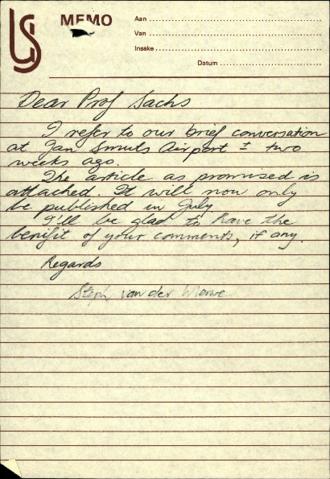 US
MEMO
Aan
Van
Insake
Datum
Dear Prof Sachs
I refer to our brief conversation
at Jan Smuts Airport ± two
weeks ago.
The article as promised is
attached. It will now only
be published in July
I'll be glad to have the
benifit of your comments, if any.
Regards
Steph van der Merwe